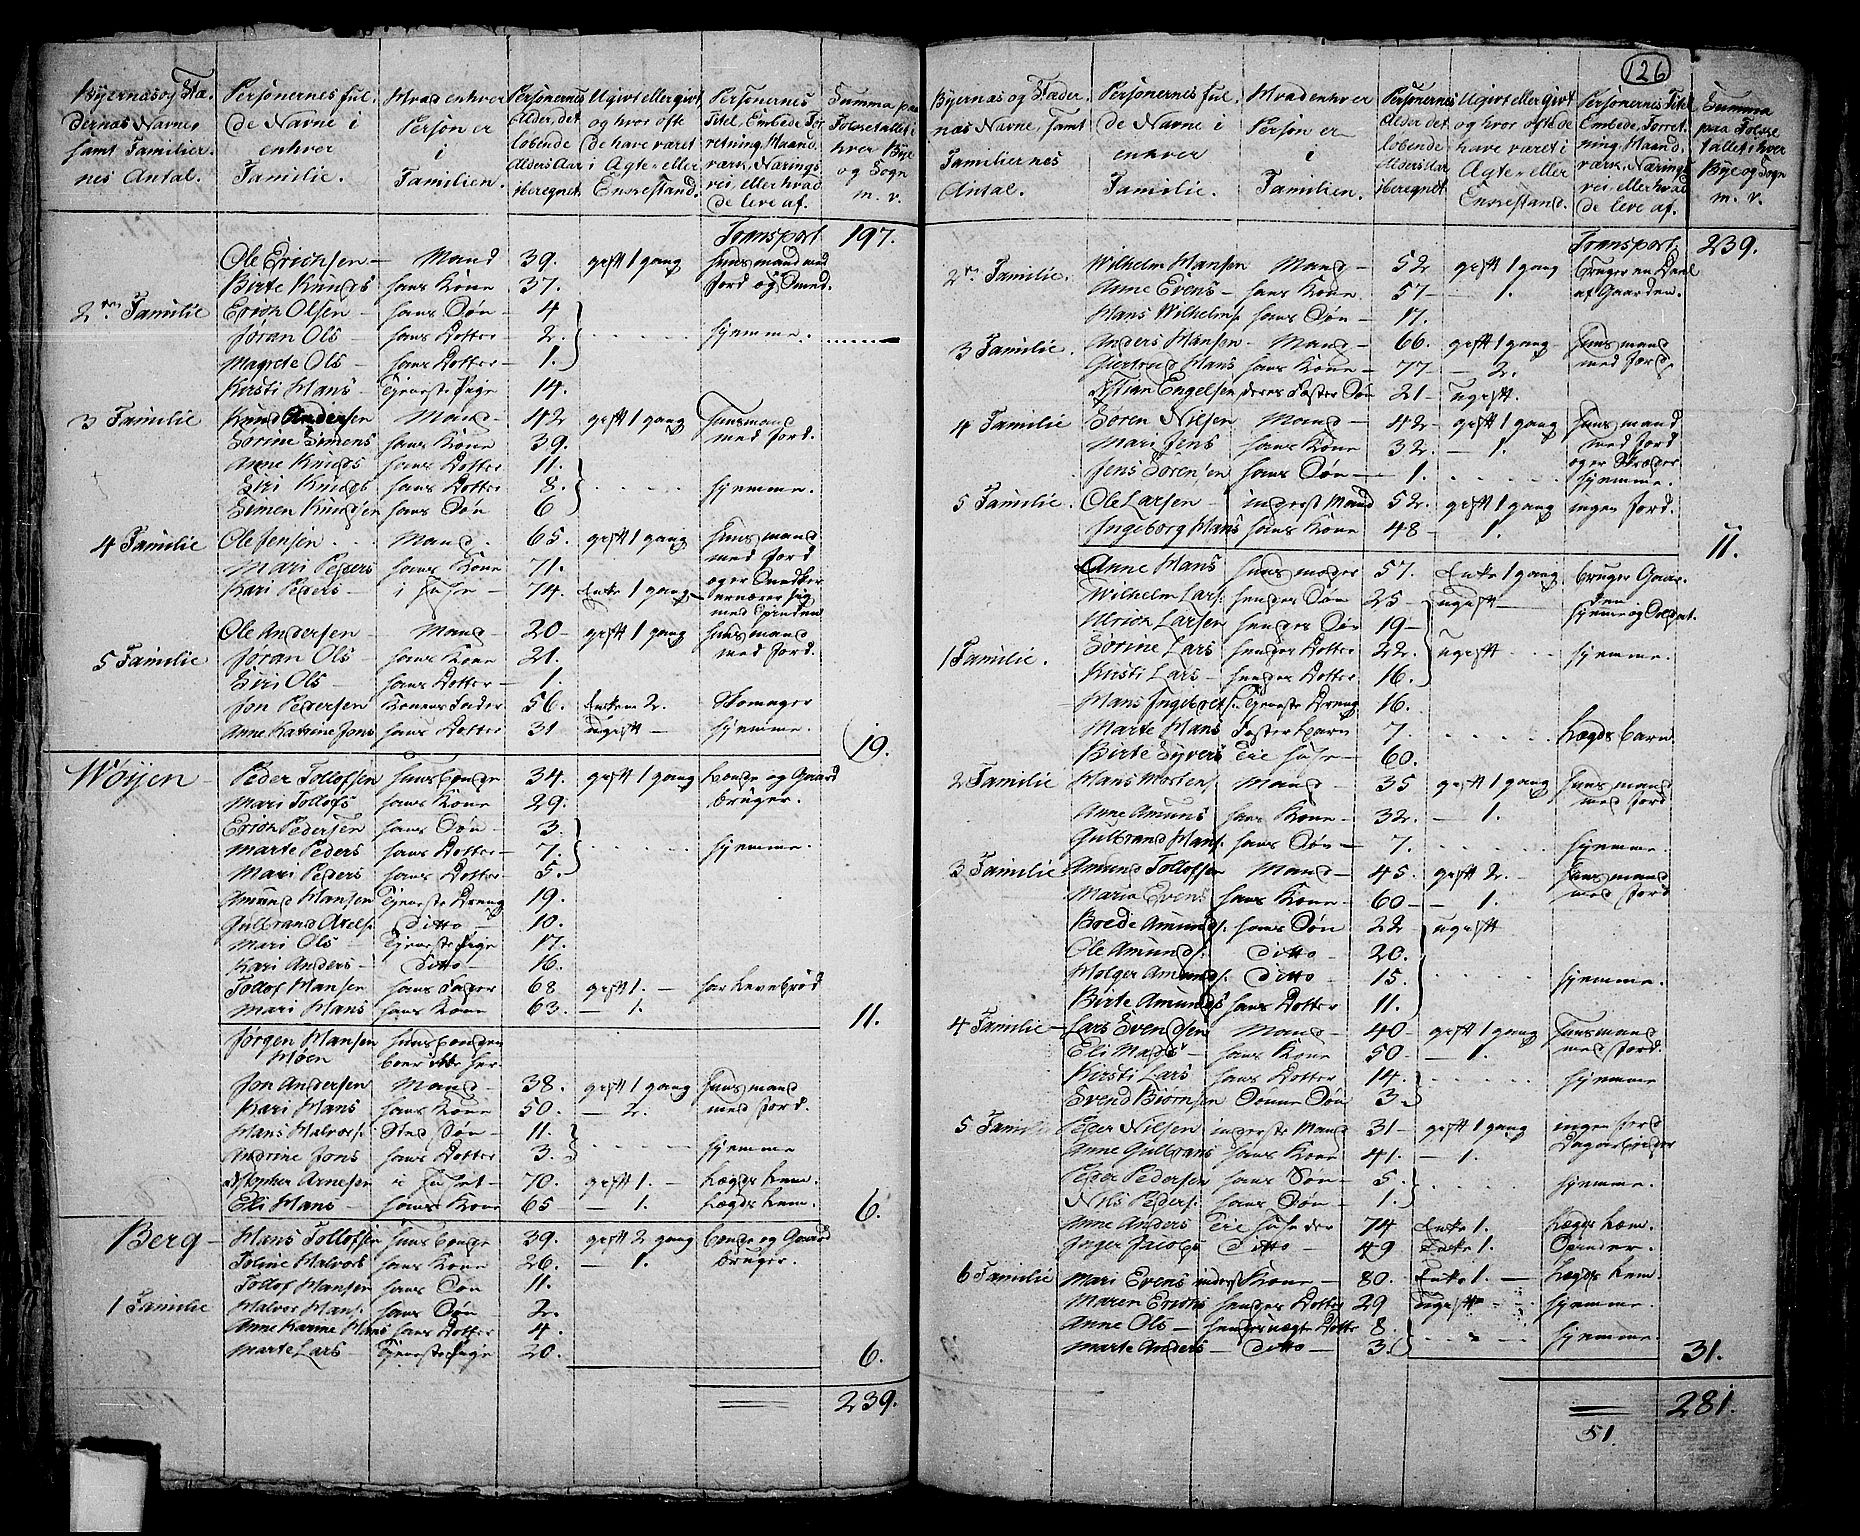 Byernas og Stædernas Navne, samt Familiernes Antal. | Personernes fulde Navne i enhver Familie. | Hvad enhver Person er i Familien. | Personernes Alder det løbende Alders Aar iberegnet. | Ugivt eller givt og hvor ofte de have været i Ægte- eller Enkestand. | Personernes Titel, Embede, Forretning, Haandværk, Næringsvei eller hvad de leve af. | Summa paa Folketallet i hver Bye og Sogn m. v.
Transport 197.
Ole Erichsen — Mand 39. gift 1 gang huusmand med
Birte Knuds hans Kone 37. jord og Smed.
2den Familie Erich Olsen — hans Søn — 4
Jøran Ols — hans Dotter — 2. hjemme.
Magrete Ols — hans Dotter — 1.
Kirsti Hans Tjeneste Pige 14.
3 Familie Knud Andersen Mand — 42 gift 1 gang huusmand
Sorine Simens hans Kone 39. med jord.
Anne Knuds hans Dotter 11.
Siri Knuds hans Dotter 8. hjemme.
Simen Knudsen hans Søn 6
4 Familie Ole Jensen Mand 65. gift 1 gang huusmand
Mari Peders hans Kone 71. med jord
Kari Peders — i huset — 74. Enke 1 gang og er Snedker
ernærer sig
med Spinden
Ole Andersen — Mand — 20 — gift 1 gang huusmand
5 Familie Jøran Ols — hans Kone 21. med jord.
Siri Ols — hans Dotter — 1.
Jon Pedersen Konens Fader 56. Enkem 2. Skomager
Anne Katrine Jons hans Dotter 31 ugift — hjemme. 19.
Wøyen — Peder Tollofsen huusbonde 34. gift 1 gang bonde og Gaard
Mari Tollofs hans Kone 29. bruger.
Erich Pedersen hans Søn — 3.
Marte Peders hans Dotter — 7. hjemme.
Mari Peders hans Dotter — 5.
Amund Hansen Tjeneste Dreng 19.
Gulbrand Axels. Ditto — 10.
Mari Ols — Tjeneste Pige 17.
Kari Anders — Ditto — 16.
Tollof Hansen hans Fader 68 gift 1. — har Levebrød
Mari Hans hans Kone 63. — 1. 11.
Jørgen Hansen huusbonden
Moen boer ikke her
Jon Andersen Mand — 38. gift 1 gang huusmand
Kari Hans hans Kone 50. — 2. med jord.
Hans Halvors. Sted Søn — 11.
Andrine Jons hans Dotter 3. hjemme
Christopher Arnesen i huset — 70. gift 1. Lægds Lem.
Eli Hans — hans Kone 65 — 1. Lægds Lem. 6.
Berg — Hans Tollofsen huusbonde 39. gift 2 gang bonde og Gaard
Joline Halvors hans Kone 26. — 1. bruger.
Tollof Hansen hans Søn 11.
1 Familie Halvor Hans. hans Søn 2.
Anne Karine Hans hans Dotter 4.
Marte Lars — Tjeneste Pige 20. 6.
239.
126
Byernas og Stædernas Navne, samt Familiernes Antal. | Personernes fulde Navne i enhver Familie. | Hvad enhver Person er i Familien. | Personernes Alder det løbende Alders Aar iberegnet. | Ugivt eller givt og hvor ofte de have været i Ægte- eller Enkestand. | Personernes Titel, Embede, Forretning, Haandværk, Næringsvei eller hvad de leve af. | Summa paa Folketallet i hver Bye og Sogn m. v.
Transport 239.
2den Familie. Wilhelm Hansen Mand — 52 gift 1 gang bruger en Deel
Anne Evens — hans Kone. 57 — 1. af Gaarden.
Hans Wilhelms. hans Søn — 17.
3 Familie. Anders Hansen — Mand — 66. gift 1 gang huusmand
Giertrud Hans hans Kone — 77 — 2. med jord
Christian Engelsen deres Foster Søn 21 — ugift.
4 Familie Søren Nilsen Mand — 42 gift 1 gang huusmand
Mari Jens hans Kone 32. — 1. med jord
Jens Sørensen hans Søn — 1. og er Skræder
hjemme.
5 Familie. Ole Larsen — inderst Mand 52. gift 1 gang ingen jord.
Ingeborg Hans hans Kone 48 — 1. 11.
Anne Hans huusmoder 57. Enke 1 gang bruger Gaarden
Wilhelm Lars. hendes Søn 25 ugift — hjemme og Soldat.
Ulrich Larsen hendes Søn 19
1 Familie. Sorine Lars hendes Dotter 22. ugift hjemme.
Kirsti Lars — hendes Dotter 16.
Hans Ingebret s. Tjeneste Dreng 16.
Marte Hans Foster barn 7. Lægds barn.
Birte Syvers Eie huse — 60.
2 Familie Hans Morten Mand 35 gift 1 gang huusmand
Anne Amunds hans Kone — 32. — 1. med jord
Gulbrand Hans. hans Søn — 7. hjemme.
3 Familie Amund Tollofsen Mand — 45. gift 2. huusmand
Marie Evens hans Kone — 60 — 1. med jord
Brede Amunds. hans Søn 22 ugift
Ole Amunds. Ditto — 20.
Holger Amunds. Ditto — 15. hjemme.
Birte Amunds hans Dotter 11.
4 Familie — Lars Svendsen Mand — 40 — gift 1 gang huusmand
Eli Mads — hans Kone 50 — 1. med jord.
Kirsti Lars hans Dotter 14. hjemme
Svend Biørnsen Sønne Søn 3.
5 Familie Peder Nilsen inderste Mand 31 — gift 1 gang ingen jord
Anne Gulbrans hans Kone 41. — 1. Dagarbeider
Peder Pedersen hans Søn — 5. hjemme.
Nils Peders. hans Søn — 1.
Anne Anders Eie huse der 74 Enke 1. Lægds Lem.
Inger Jacobs Ditto — 49 Enke 1. Spinder.
6 Familie Mari Evens inderst Kone — 80. Enke 1. — Lægds Lem.
Maren Erichs hendes Dotter 29 ugift hjemme.
Anne Ols — hendes ægte Dotter 8. hjemme.
Marte Anders — Ditto — 3. 31.
281.
51.